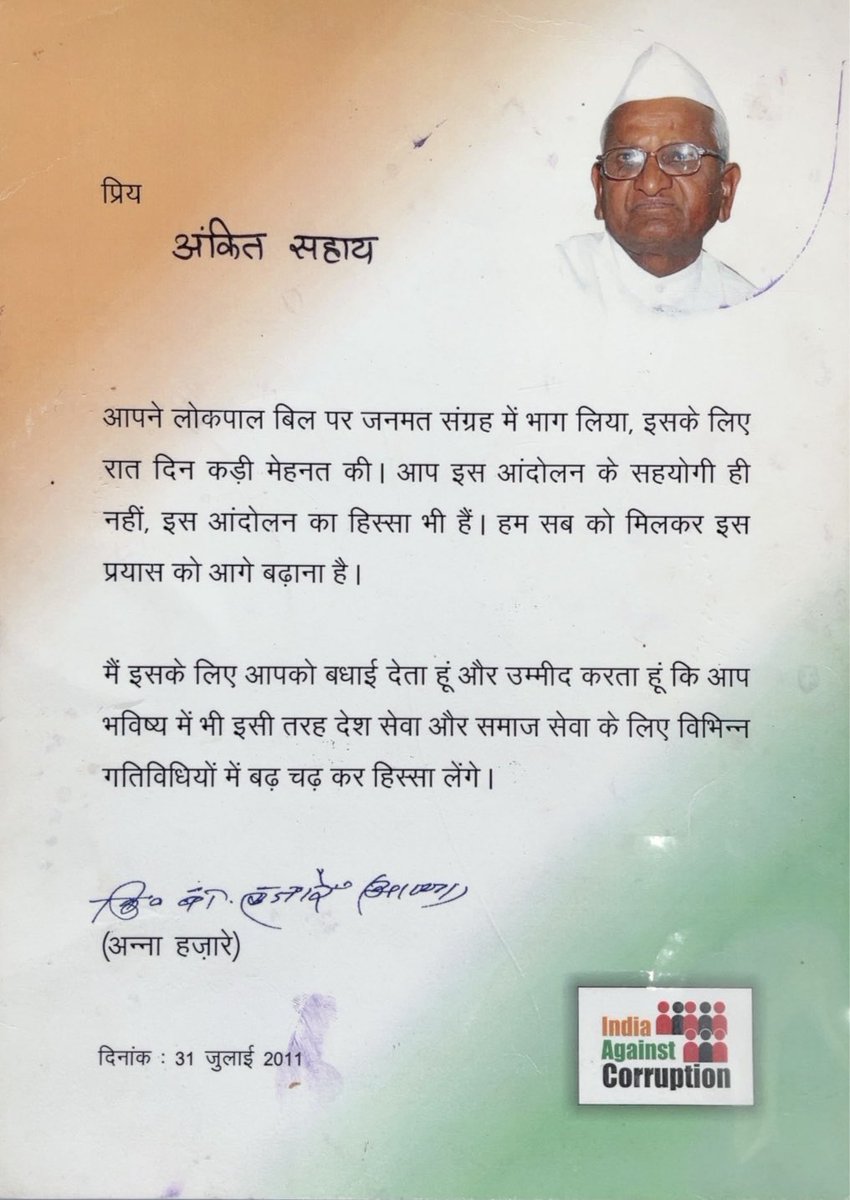 प्रिय
अंकित सहाय
आपने लोकपाल बिल पर जनमत संग्रह में भाग लिया, इसके लिए
रात दिन कड़ी मेहनत की। आप इस आंदोलन के सहयोगी ही
नहीं, इस आंदोलन का हिस्सा भी हैं। हम सब को मिलकर इस
प्रयास को आगे बढ़ाना है।
मैं इसके लिए आपको बधाई देता हूं और उम्मीद करता हूं कि आप
भविष्य में भी इसी तरह देश सेवा और समाज सेवा के लिए विभिन्न
गतिविधियों में बढ़ चढ़ कर हिस्सा लेंगे।
(अन्ना हज़ारे)
दिनांक : 31 जुलाई 2011
India
Against
Corruption